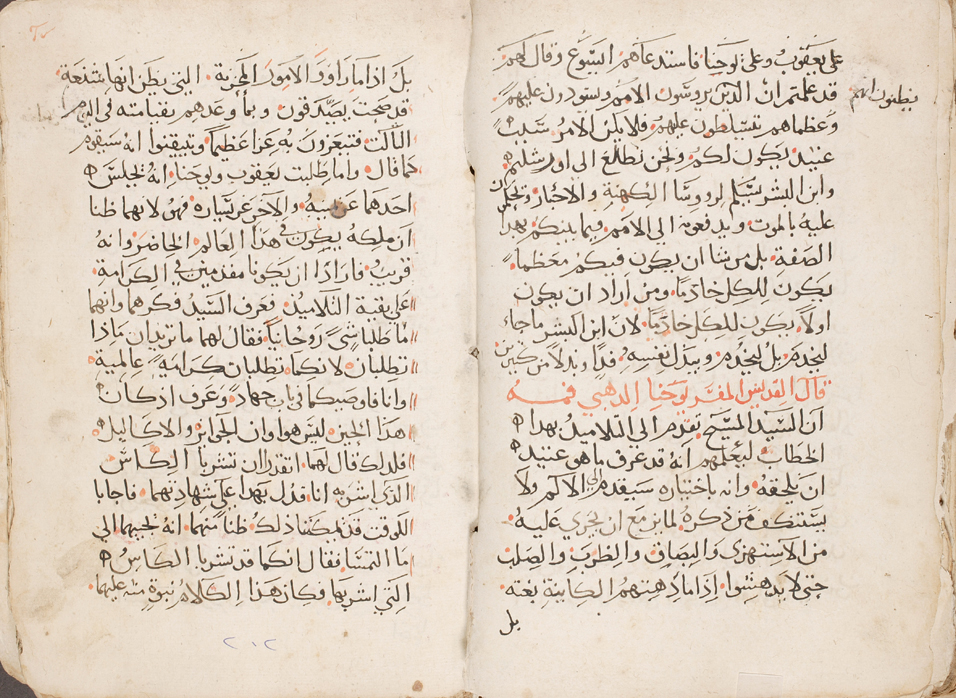 على يعقوب وعلى يوحنا فاستدعاهم ايسوع وقال لهم
قد علمتم ان الذين يروسون الامم يسودون عليهم
يظنون انهم
وعظماهم تتسلطون عليهم فلا يكن الامر
عتيد ليكون لكم ونحن نطلع الى اورشليم
وابن البشر يسلم لرووسا الكهنة والاحبار
عليه بالموت ويدفعونه الى الامم فيما بينكم بهدا
الصفة بل من شا ان يكون فيكم معظما
يكون للكل خادما ومن اراد ان يكون
اولا يكون للكل خادما لان ابن البشر ما جاء
ليخدم بل ليخدم ويبدل نفسه فدا وبدلا من كثيرين
قال القديس المفسر يوحنا الدهبي فمه
ان السيد المسيح تقدم الى التلاميد بهدا
الخطاب ليعلمهم انه قد عرف ما هو عتيد
ان يلحقه وانه باختياره سيقدم الى الالم ولا
يستنكف من ذكره لما يزمع ان يجري عليه
من الاستهزى والبصاق والضرب والصلب
حتى لا يدهشوا اذا ما دهمتهم الكاينة بغته
بل
بل اذا ما راوا الامور المحزنة التي يظن انها شنعة
قد صحت يصدقون وبما وعدهم بقيامته في اليوم
الثالث فتيعزون به عزا عظيما وتيقنوا انه سيقوم
كما قال واما طلبت يعقوب ويوحنا انه يجلس
احدهما عن يمينه والاخر عن يساره فهو لانهما ظنا
ان ملكه يكون في هدا العالم الحاضر وانه
قريب فارادا ان يكونا مقدمين في الكرامة
على بقية التلاميد فعرف السيد فكرهما وانهما
ما طلبا شي روحانيا فقال لهما ما تريدان ماذا
تطلبان لانكما تطلبان كرامة عالمية
وانا فاوصيكما في باب جهاد وعرف اذ كان
هدا الحين ليس هو اوان الجوايز والاكاليل
فلدلك قال لهما اتقدران تشربا الكاس
الذي اشربه انا فدل بهدا على شهادتهما فاجابا
للوقت قد يمكننا ذلك ظنا منهما انه يجيبهما الى
ما التمسا فقال انكما قد تشربا الكاس
التي اشربها فكان هدا الكلام نبوة منه عليهما
٢٠٢